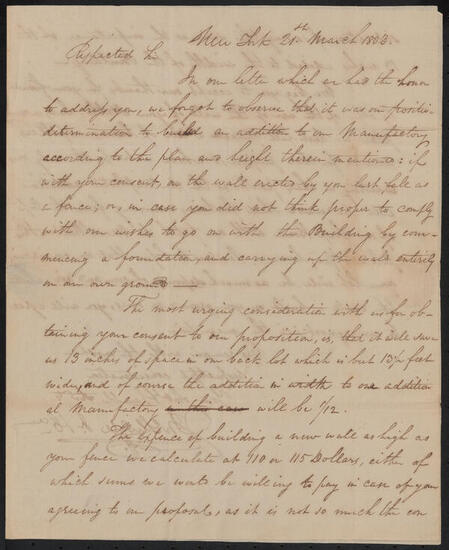 New York 21st March 1803.
Respected Sir
In our letter which we had the honor
to address you, we forgot to observe that it was our positive
determination to build an addition to our Manufactory
according to the plan and height therein mentioned: if
with your consent, on the wall erected by you last fall as
a fence; or, in case you did not think proper to comply
with our wishes to go on with the Building by com-
mencing a foundation, and carrying up the walls entirely
on our own ground —
The most urging consideration with us for ob-
taining your consent to our proposition, is, that it will save
us 13 inches of space in our back lot which is but feet
wide, and of course the addition in width to our addition
al Manufactory in this case will be 1/12.
The Expence of building a new wall as high as
your fence we calculate at 110 or 115 Dollars, either of
which sums we would be willing to pay in case of your
agreeing to our proposal, as it is not so much the con